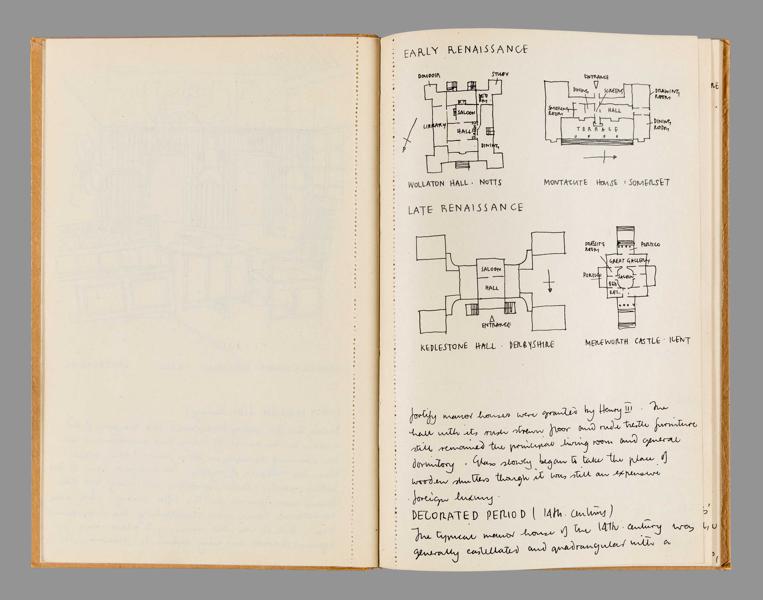 EARLY RENAISSANCE
BOUDOIR
STUDY
SALOON
LIBRARY
HALL
DINING
WOLLATON HALL · NOTTS
ENTRANCE
DINING
SCREENS
DRAWING ROOM
SMOKING ROOM
HALL
TERRACE
DINING ROOM
MONTACUTE HOUSE · SOMERSET
LATE RENAISSANCE
SALOON
HALL
ENTRANCE
KEDLESTONE HALL · DERBYSHIRE
ROOM
PORTICO
GREAT GALLERY
PORTICO
SALOON
BED
MEREWORTH CASTLE · KENT
fortify manor houses were granted by Henry III. The
hall with its rush strewn floor and rude trestle furniture
still remained the principal living room and general
dormitory. Glass slowly began to take the place of
wooden shutters though it was still an expensive
foreign luxury.
DECORATED PERIOD (14th. century)
The typical manor house of the 14th. century was
generally castellated and quadrangular with a